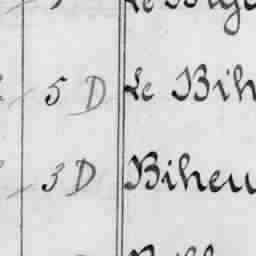 5 D Le Bih
3 D Biheu